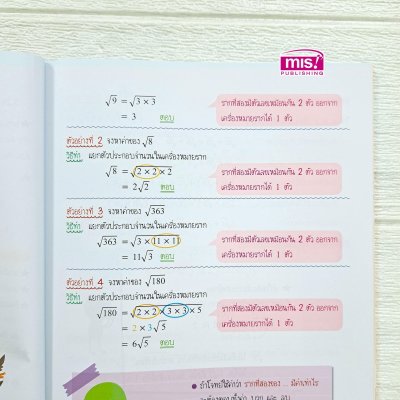 mis!
PUBLISHING
√9 = √3 × 3
= 3 ตอบ
รากที่สองมีตัวเลขเหมือนกัน 2 ตัว ออกจาก
เครื่องหมายรากได้ 1 ตัว
ตัวอย่างที่ 2 จงหาค่าของ √8
วิธีทำ แยกตัวประกอบจำนวนในเครื่องหมายราก
√8 = √2 × 2 × 2
= 2√2 ตอบ
รากที่สองมีตัวเลขเหมือนกัน 2 ตัว ออกจาก
เครื่องหมายรากได้ 1 ตัว
ตัวอย่างที่ 3 จงหาค่าของ √363
วิธีทำ แยกตัวประกอบจำนวนในเครื่องหมายราก
√363 = √3 × 11 × 11
= 11√3 ตอบ
รากที่สองมีตัวเลขเหมือนกัน 2 ตัว ออกจาก
เครื่องหมายรากได้ 1 ตัว
ตัวอย่างที่ 4 จงหาค่าของ √180
วิธีทำ แยกตัวประกอบจำนวนในเครื่องหมายราก
√180 = √2 × 2 × 3 × 3 × 5
= 2 × 3√5
= 6√5 ตอบ
รากที่สองมีตัวเลขเหมือนกัน 2 ตัว ออกจาก
เครื่องหมายรากได้ 1 ตัว
ถ้าโจทย์ใช้คำว่า รากที่สองของ ... มีค่าเท่าไร